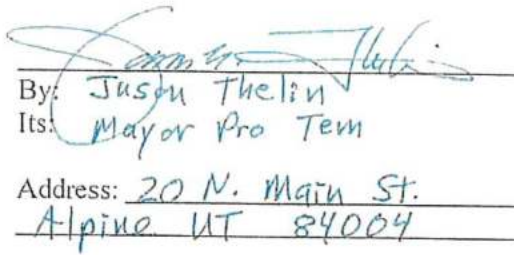 By: Jason Thelin
Its: Mayor Pro Tem
Address: 20 N. Main St.
Alpine UT 84004